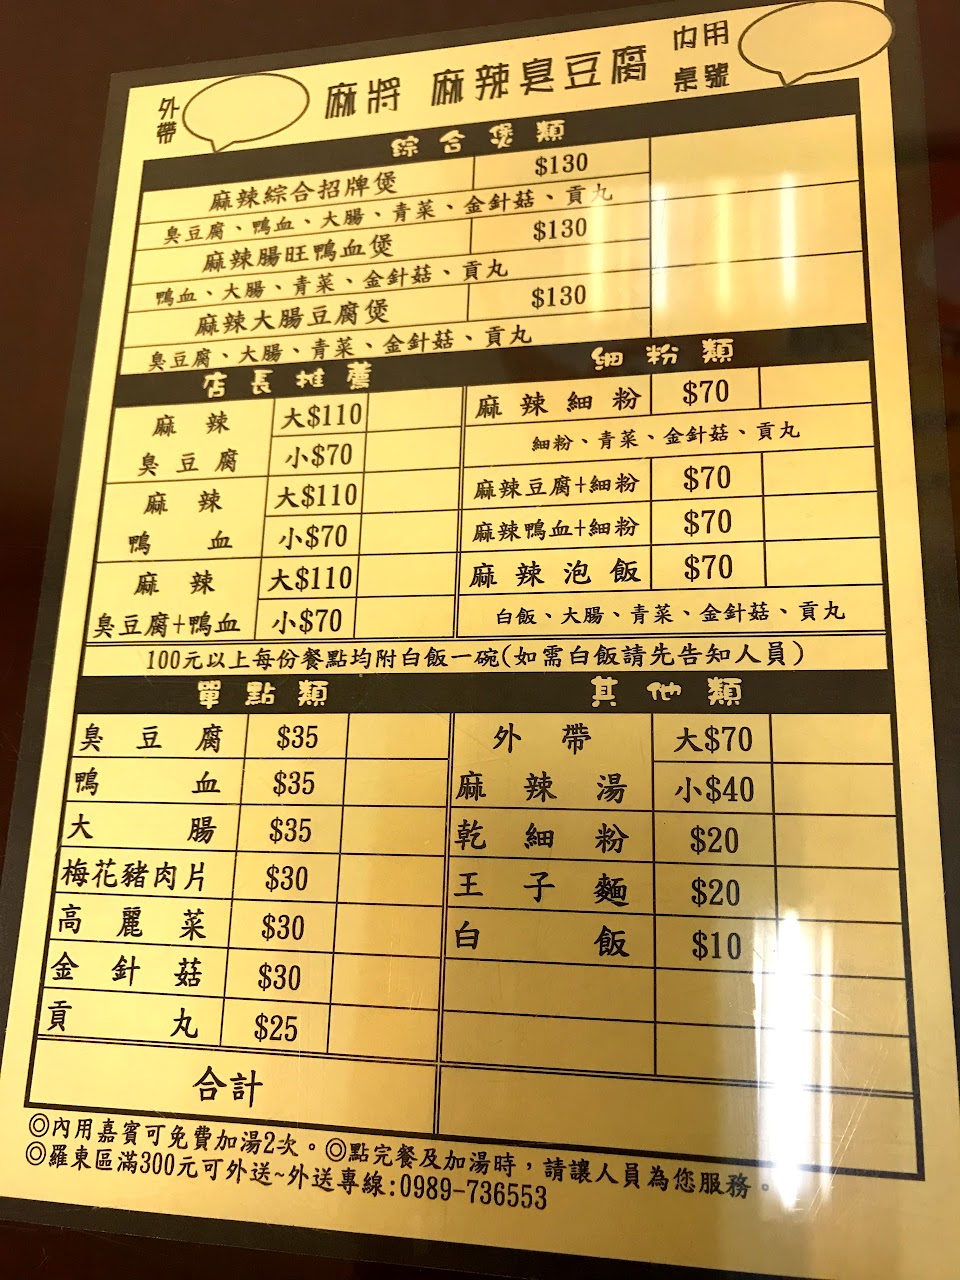 外帶
麻將 麻辣臭豆腐
內用桌號
綜合煲類
麻辣綜合招牌煲 $130
臭豆腐、鴨血、大腸、青菜、金針菇、貢丸
麻辣腸旺鴨血煲 $130
鴨血、大腸、青菜、金針菇、貢丸
麻辣大腸豆腐煲 $130
臭豆腐、大腸、青菜、金針菇、貢丸
店長推薦
麻辣臭豆腐 大$110
小$70
麻辣鴨血 大$110
小$70
麻辣臭豆腐+鴨血 大$110
小$70
細粉類
麻辣細粉 $70
細粉、青菜、金針菇、貢丸
麻辣豆腐+細粉 $70
麻辣鴨血+細粉 $70
麻辣泡飯 $70
白飯、大腸、青菜、金針菇、貢丸
100元以上每份餐點均附白飯一碗(如需白飯請先告知人員)
單點類
臭豆腐 $35
鴨血 $35
大腸 $35
梅花豬肉片 $30
高麗菜 $30
金針菇 $30
貢丸 $25
其他類
外帶麻辣湯 大$70
小$40
乾細粉 $20
王子麵 $20
白飯 $10
合計
◎內用嘉賓可免費加湯2次。◎點完餐及加湯時，請讓人員為您服務。
◎羅東區滿300元可外送~外送專線:0989-736553